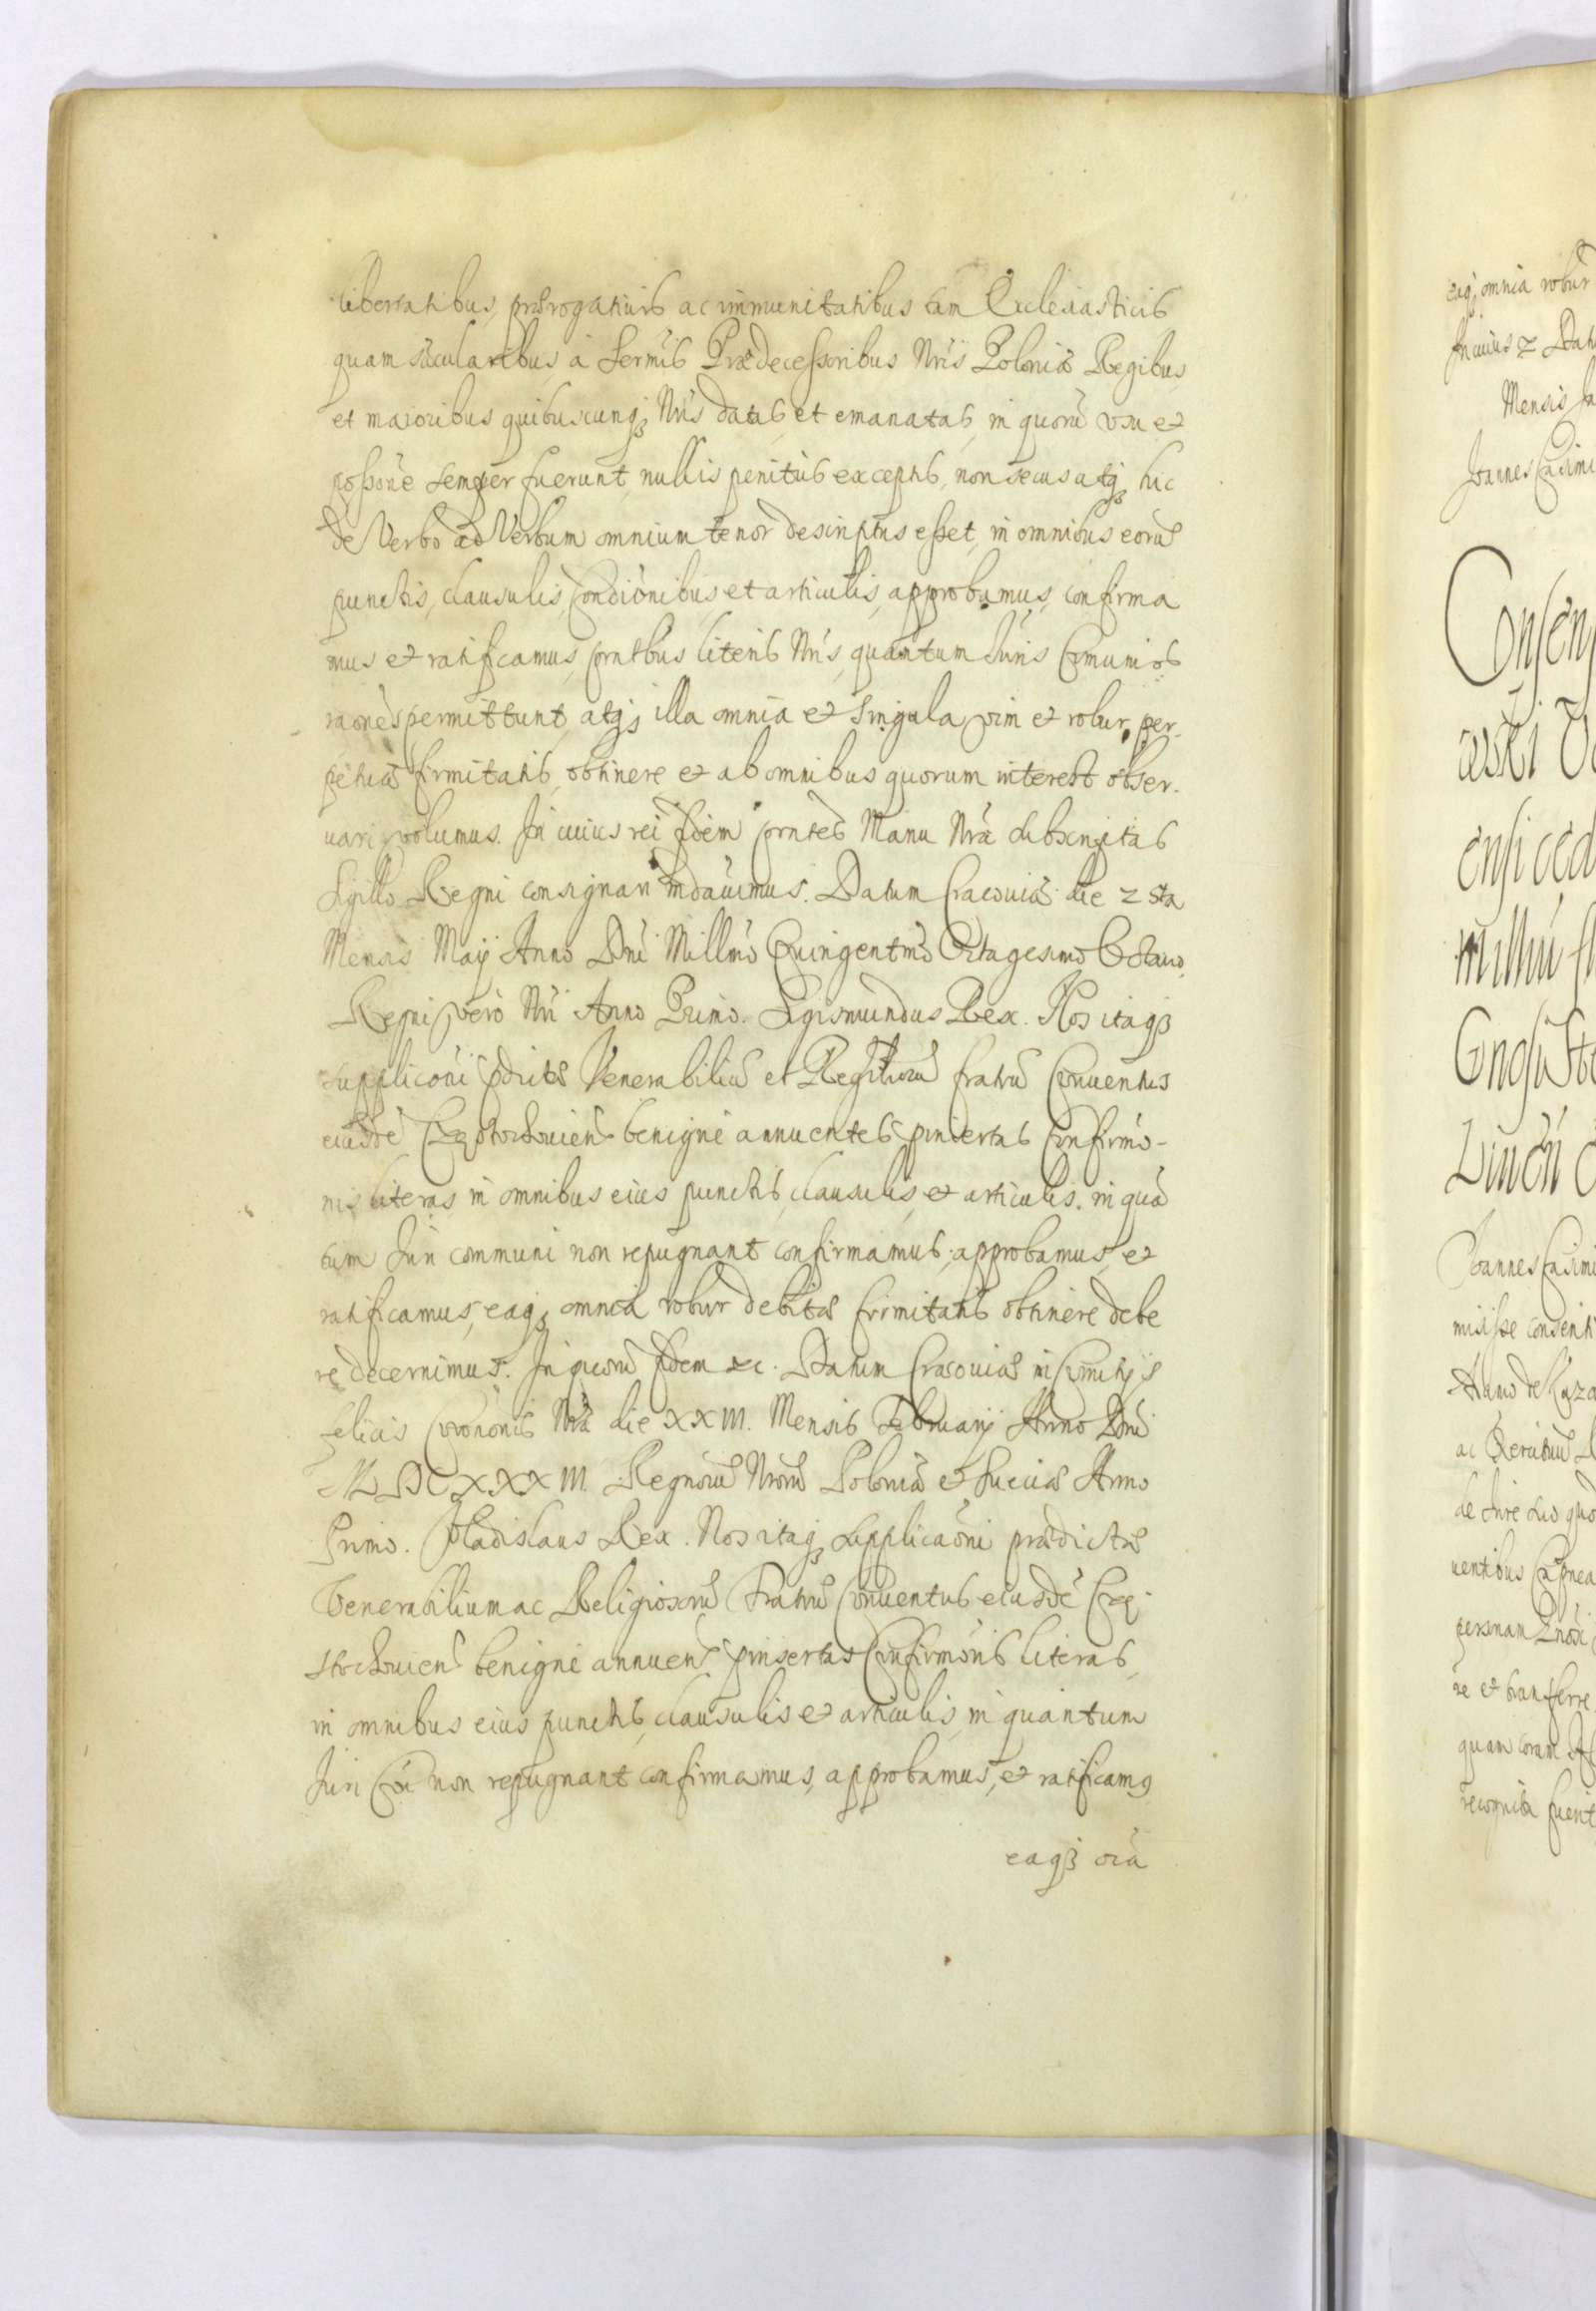 libertatibus, prærogatiuis ac immunitatibus tam Ecclesiasticis
quam sæcularibus, à Sermis Prædecessoribus Nris Poloniæ Regibus,
et maioribus quibuscunq; Nris datas, et emanatas, in quorũ vsu et
possone semper fuerunt, nullis penitùs exceptis, non secus atq; hic
de Verbo ad Verbum omnium tenor descriptus esset, in omnibus eorũ
punctis, clausulis, Condiõnibus et articulis, approbamus, confirma
mus et ratificamus, pntibus literis Nris, quantum Iuris Cõmunis
raones permittunt, atq; illa omnia et singula, vim et robur, per-
petuæ firmitatis, obtinere et ab omnibus quorum interest obser-
uari volumus. In cuius rei fidem pntes Manu Nrã subscriptas
Sigillo Regni consignari mdauimus. Datum Cracouiæ die 2 sta
Mensis Maij Anno Dni Millmõ Quingentmõ Octagesimo Octauo,
Regni verò Nri Anno Primo. Sigismundus Rex. Nos itaq;
supplicõni pdictæ Venerabiliũ et Religiosorũ fratrũ Conuentus
eiusdẽ Częstochouien benignè annuentes pinsertas Confirmõ-
nis literas in omnibus eius punctis, clausulis, et articulis. in quã
tum Iuri communi non repugnant confirmamus, approbamus, et
ratificamus, eaq; omnia robur debitæ firmitatis obtinere debe
re decernimus. In quorũ fidem &c. Datum Cracouiæ in Comitijs
felicis Coronõnis Nræ die XXIII. Mensis Februarij Anno Dni
M DC XXXIII. Regnorũ Nrorũ Poloniæ et Sueciæ Anno
Primo. Vladislaus Rex. Nos itaq; supplicaõni prædictæ
Venerabilium ac Religiosorũ Fratrũ Conuentus eiusdẽ Czę-
stochouien benignè annuen. pinsertas Confirmõnis literas,
in omnibus eius punctis, clausulis et articulis, in quantum
Iuri Cõi non repugnant confirmamus, approbamus, et ratificamq
eaq; oia
eaq; omnia robur
In cuius
Mensis
Joannes Casimi
Consen
milliũ
Joannes Casimi
misisse consenti
de Iure suo quo
re et transferre
quam coram
recognita fuerit